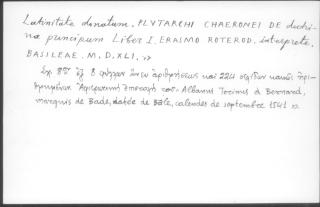 Latinitate donatum. PLVTARCHI CHAERONEI DE doctri-
na principum Liber I. ERASMO ROTEROD. interprete.
BASILEAE. M. D. XLI.
8 φύλλων ἄνευ ἀριθμήσεως καὶ 224 σελίδων
Ἀφιερωτικὴ ἐπιστολὴ τοῦ Albanus Torinus à Bernard,
marquis de Bade, datée de Bâle, calendes de septembre 1541